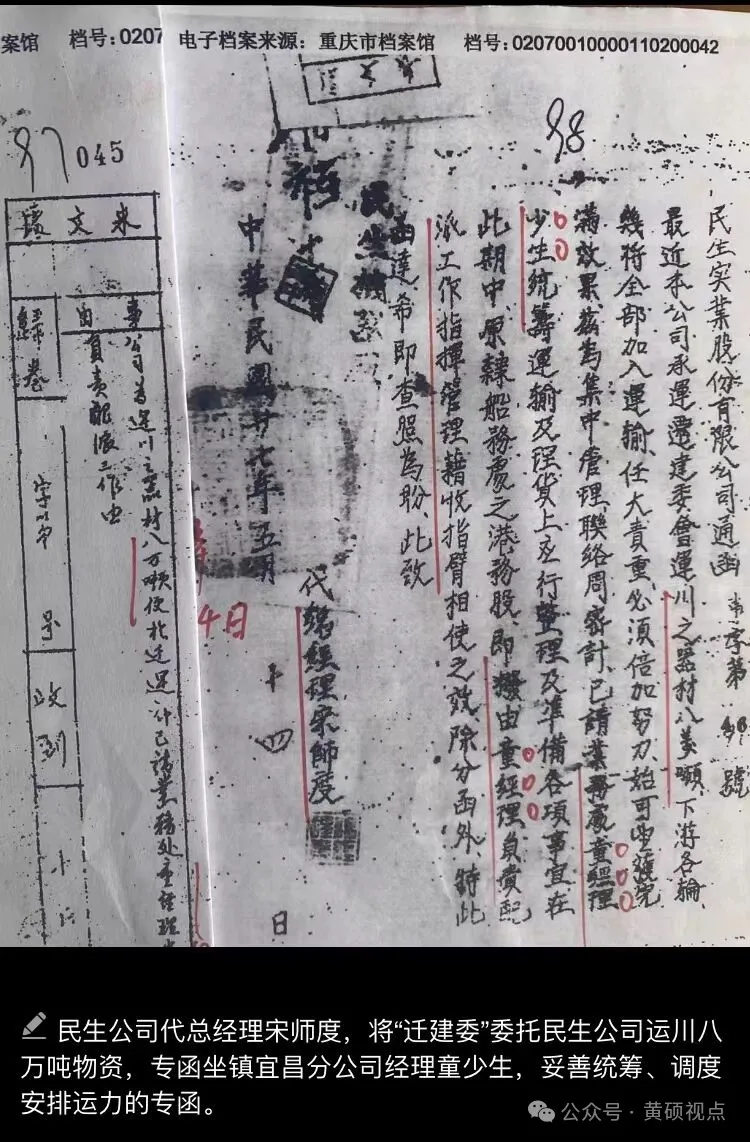 案馆 档号:0207
电子档案来源：重庆市档案馆 档号:02070010000110200042
来文
98
民生实业股份有限公司通函 字第 號
最近本公司承運遷建委會運川之器材八萬噸下游各輪
幾将全部加入運輸任大責重必須倍加努力始可望獲完
滿效果兹為集中管理联絡周密計已請業務處童經理
少生統籌運輸及理貨上应行整理及準備各項事宜在
此期中原隸船務處之港務股即撥由童經理負責配
派工作指揮管理藉收指臂相使之效除分函外特此
函達希即查照為盼此致
民生機器
代總經理宋師度
中華民國廿七年五月十四日
4日
87 045
来文
事由
公司為運川之器材八万噸使於迁運計已請業務处童經理
負責配派工作由
卷
字第
号
收到
民生公司代总经理宋师度，将“迁建委”委托民生公司运川八
万吨物资，专函坐镇宜昌分公司经理童少生，妥善统筹、调度
安排运力的专函。
公众号·黄硕视点